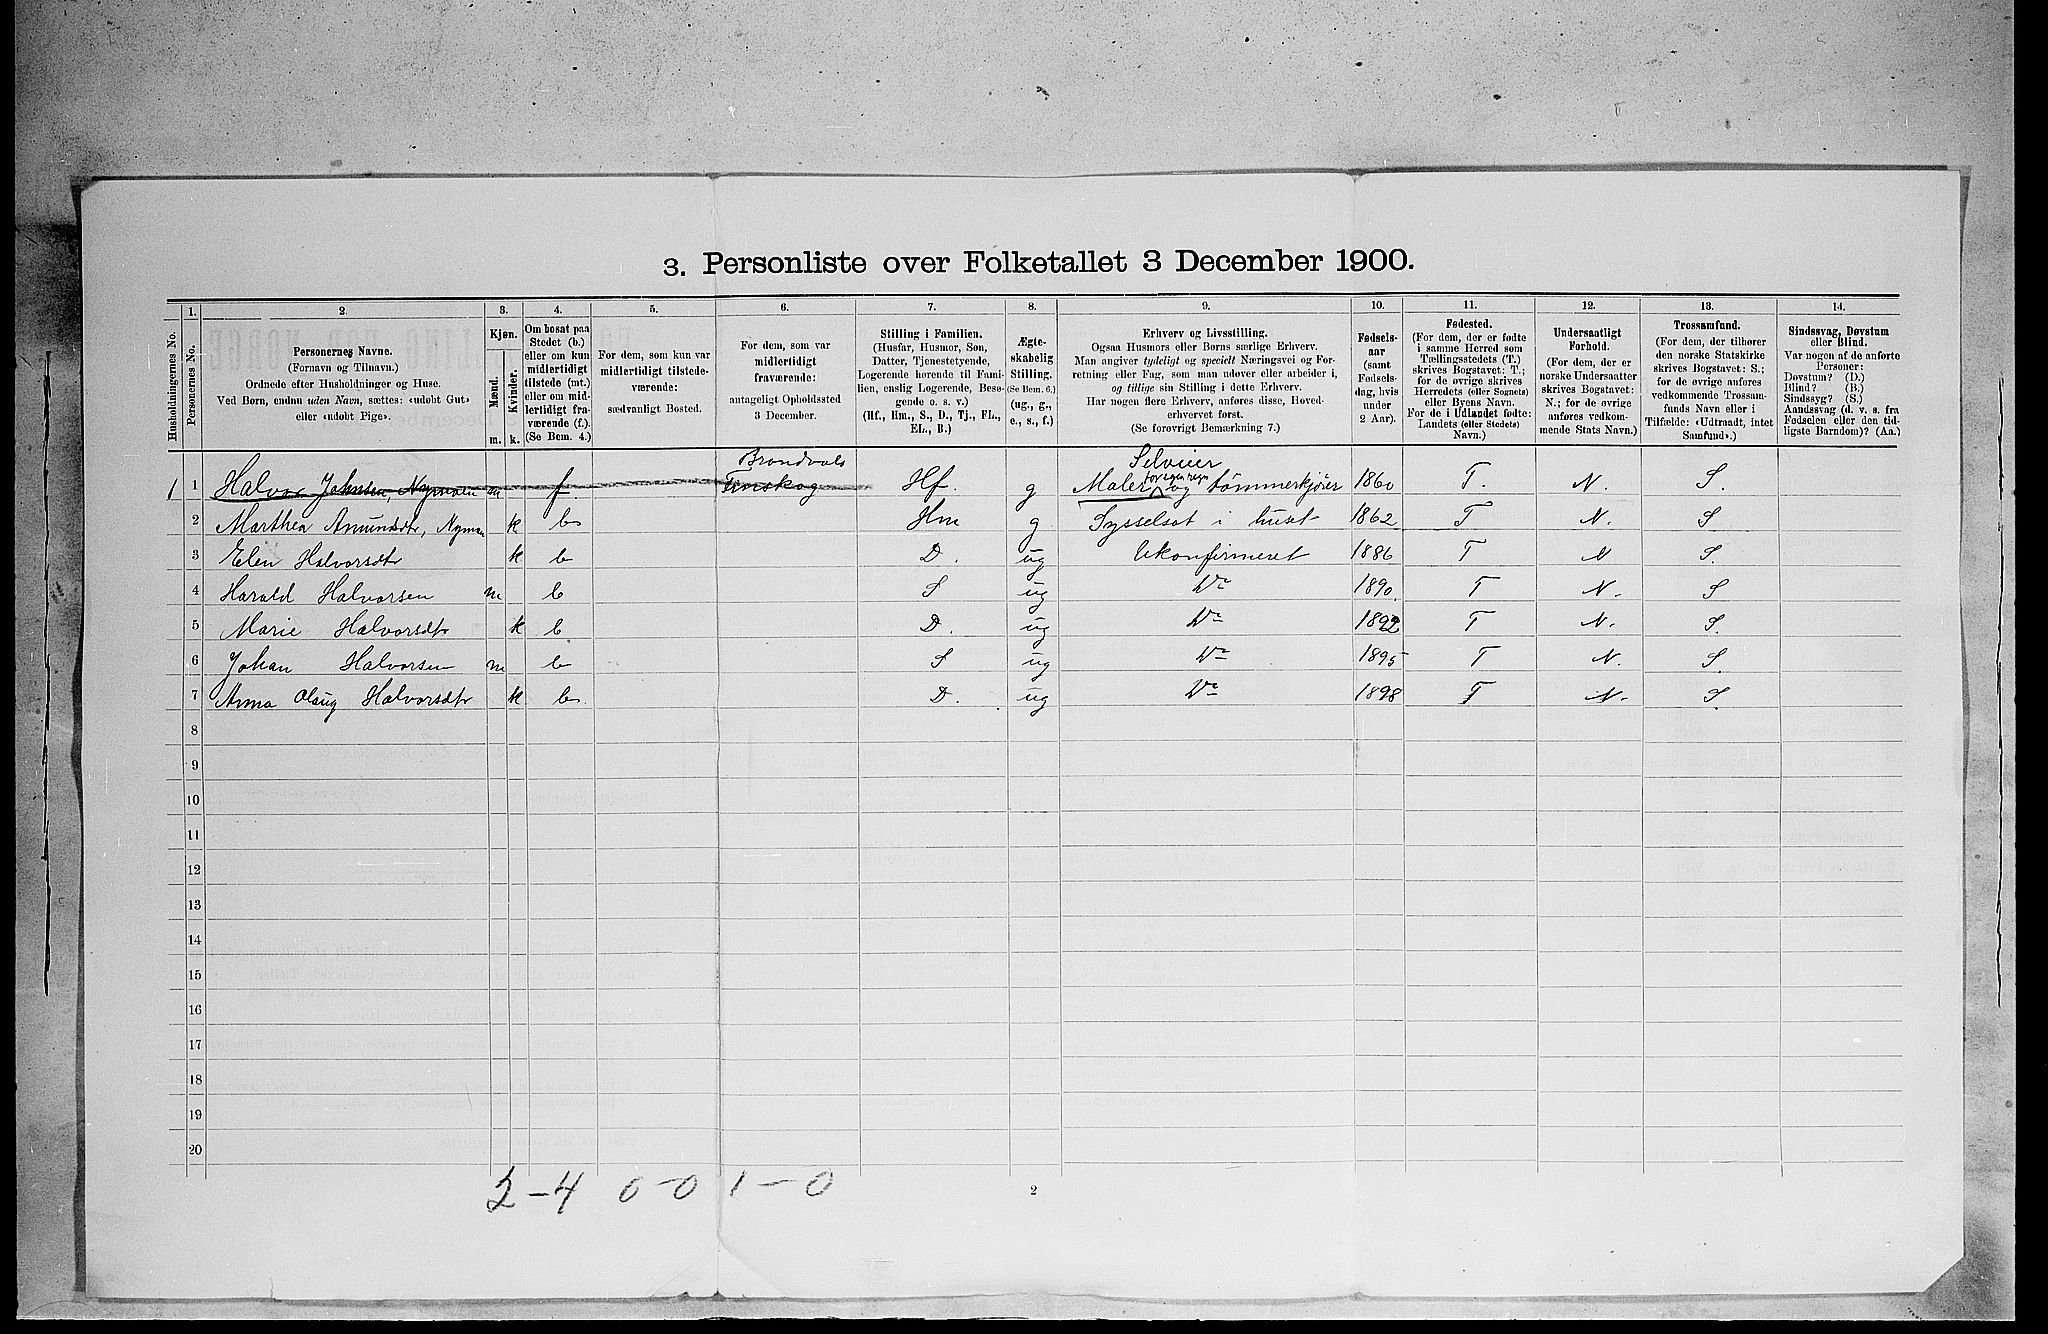 3. Personliste over Folketallet 3 December 1900.
Husholdningernes No.
1.
Personernes No.
2.
Personernes Navne.
(Fornavn og Tilnavn.)
Ordnede efter Husholdninger og Huse.
Ved Børn, endnu uden Navn, sættes: «udobt Gut»
eller «udobt Pige».
3.
Kjøn.
Mænd.
Kvinder.
m. k.
4.
Om bosat paa
Stedet (b.)
eller om kun
midlertidigt
tilstede (mt.)
eller om mid-
lertidigt fra-
værende (f.).
(Se Bem. 4.)
5.
For dem, som kun var
midlertidigt tilstede-
værende:
sædvanligt Bosted.
6.
For dem, som var
midlertidigt
fraværende:
antageligt Opholdssted
3 December.
7.
Stilling i Familien.
(Husfar, Husmor, Søn,
Datter, Tjenestetyende,
Logerende hørende til Fami-
lien, enslig Logerende, Besø-
gende o. s. v.)
(Hf., Hm., S., D., Tj., FL.,
EL., B.)
8.
Ægte-
skabelig
Stilling.
(Se Bem. 6.)
(ug., g.,
e., s., f.)
9.
Erhverv og Livsstilling.
Ogsaa Husmors eller Børns særlige Erhverv.
Man angiver tydeligt og specielt Næringsvei og For-
retning eller Fag, som man udøver eller arbeider i,
og tillige sin Stilling i dette Erhverv.
Har nogen flere Erhverv, anføres disse, Hoved-
erhvervet først.
(Se forøvrigt Bemærkning 7.)
10.
Fødsels-
aar
(samt
Fødsels-
dag, hvis
under
2 Aar).
11.
Fødested.
(For dem, der er fødte
i samme Herred som
Tællingsstedets (T.)
skrives Bogstavet: T.;
for de øvrige skrives
Herredets (eller Sognets)
eller Byens Navn.
For de i Udlandet fødte:
Landets (eller Stedets)
Navn.)
12.
Undersaatligt
Forhold.
(For dem, der er
norske Undersaatter
skrives Bogstavet:
N.; for de øvrige
anføres vedkom-
mende Stats Navn.)
13.
Trossamfund.
(For dem, der tilhører
den norske Statskirke
skrives Bogstavet: S.;
for de øvrige anføres
vedkommende Trossam-
funds Navn eller i
Tilfælde: «Udtraadt, intet
Samfund».)
14.
Sindssvag, Døvstum
eller Blind.
Var nogen af de anførte
Personer:
Døvstum? (D.)
Blind? (B.)
Sindssyg? (S.)
Aandssvag (d. v. s. fra
Fødselen eller den tid-
ligste Barndom)? (Aa.)
Brandvols Selveier
1 1 Halvor Johnsen, Nymoen m f. Finskog Hf. g Maler og tömmerkjörer 1860 T. N. S.
2 Marthea Amundsdtr, Nymoen k b Hm g Sysselsat i huset 1862 T N. S
3 Elen Halvorsdtr k b D. ug Ukonfirmeret 1886 T N S.
4 Harald Halvorsen m b S ug Do 1890. T N. S
5 Marie Halvorsdtr k b D. ug Do 1892 T N. S.
6 Johan Halvorsen m b S ug Do 1895 T N. S
7 Anna Olaug Halvorsdtr k b D. ug Do 1898 T N. S.
8
9
10
11
12
13
14
15
16
17
18
19
20
2-4 0-0 1-0
2